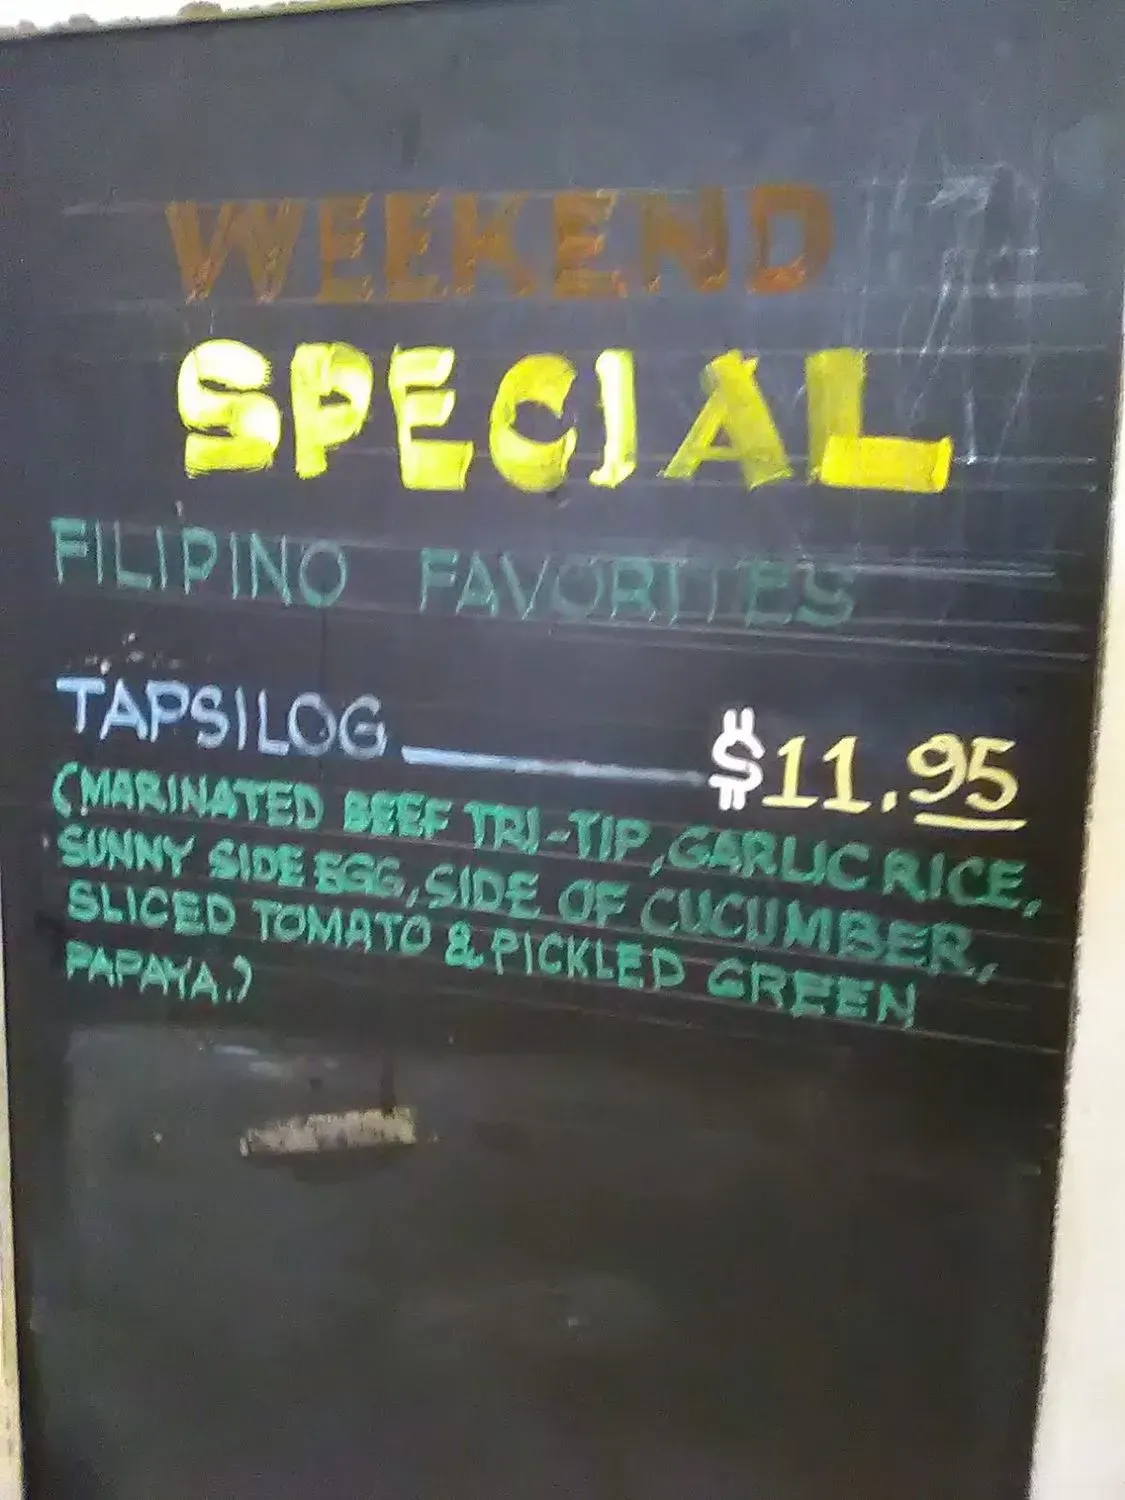 WEEKEND
SPECIAL
FILIPINO FAVORITES
TAPSILOG $11.95
(MARINATED BEEF TRI-TIP, GARLIC RICE,
SUNNY SIDE EGG, SIDE OF CUCUMBER,
SLICED TOMATO & PICKLED GREEN
PAPAYA.)